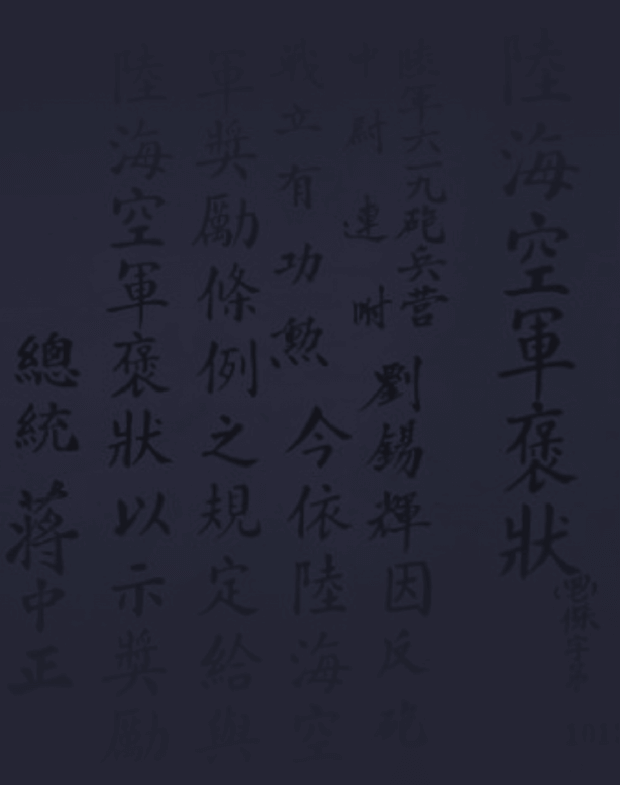 陸海空軍褒狀
陸軍六一九砲兵營
中尉連附劉錫輝因反砲
戰立有功勲今依陸海空
軍獎勵條例之規定給與
陸海空軍褒狀以示獎勵
總統蔣中正